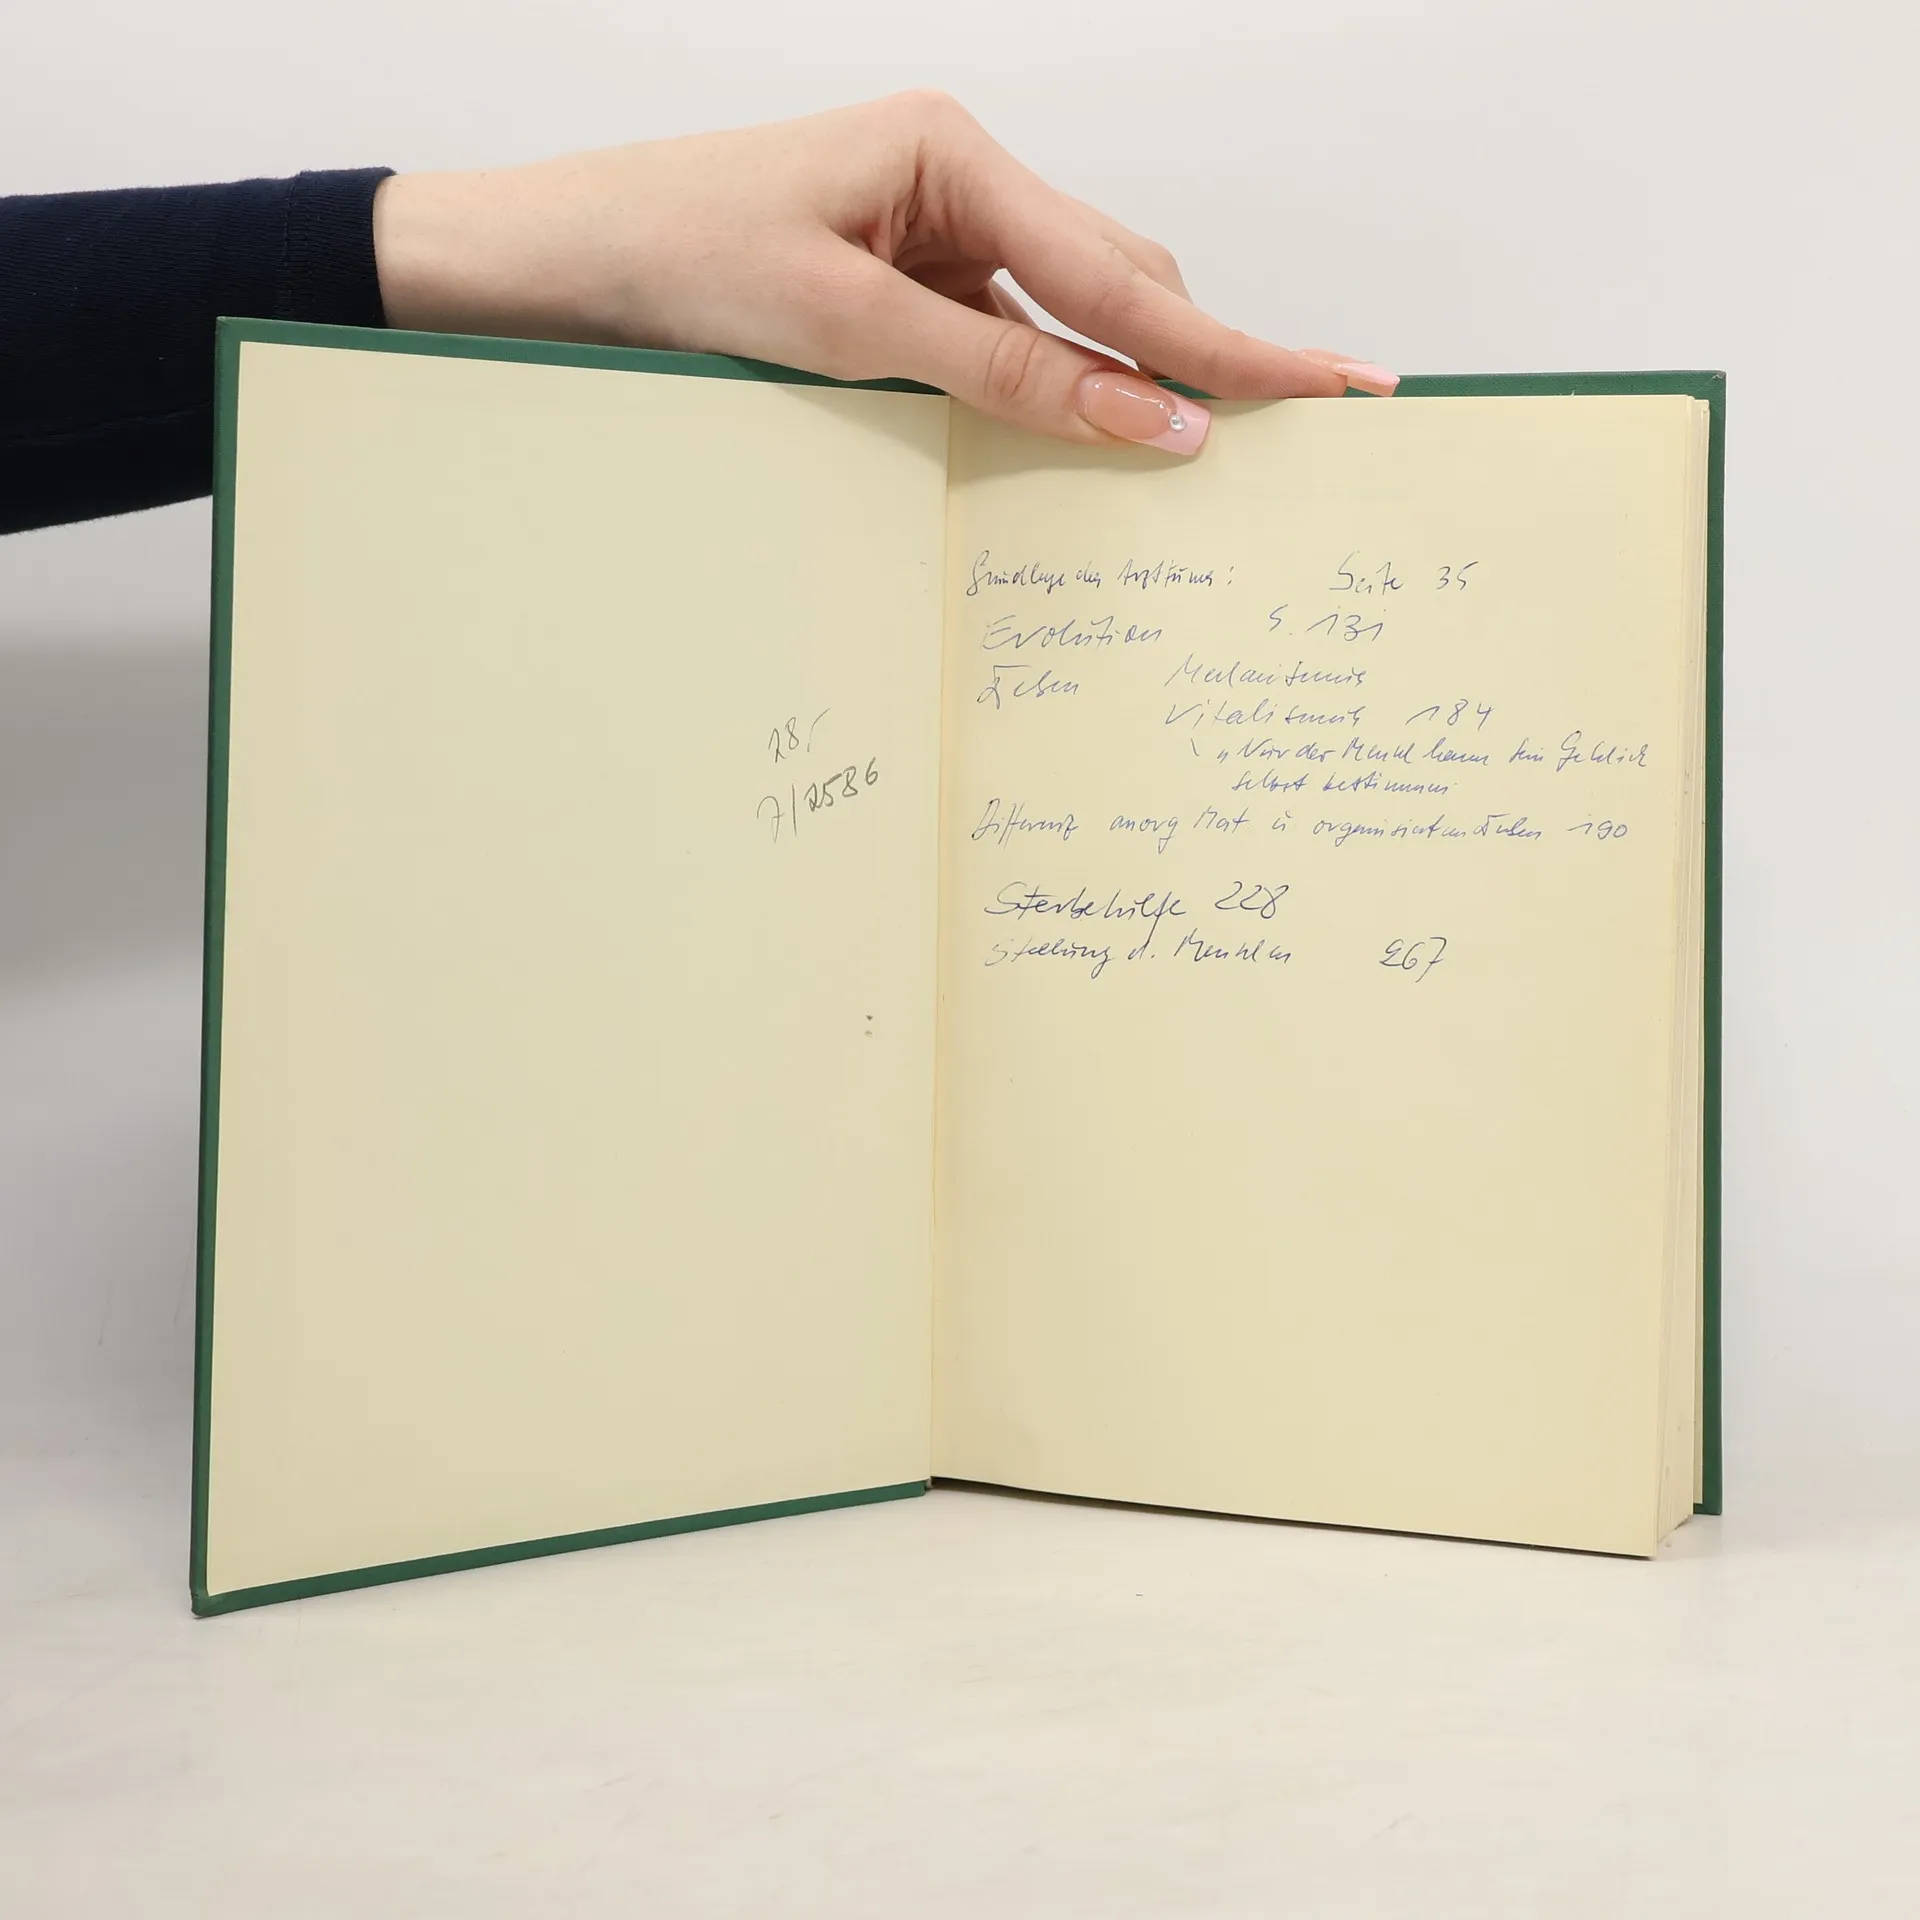 28,-
7/2586
Grundlage des Arzttums: Seite 35
Evolution S. 131
Leben Mechanismus
Vitalismus 184
\ „Nur der Mensch kann sein Geschick
selbst bestimmen.
Differenz anorg Mat u organisiertem Leben 190
Sterbehilfe 228
Stellung d. Menschen 267